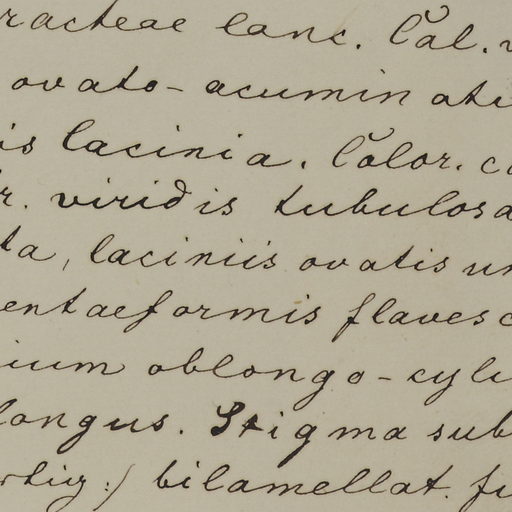 racteae lanc. Cal.
ovato-acuminati
is lacinia. Color. c
r. viridis tubulosa
ta, laciniis ovatis un
entaeformis flavesc
ium oblongo-cyli
longus. Stigma sub
bilamellat. fu